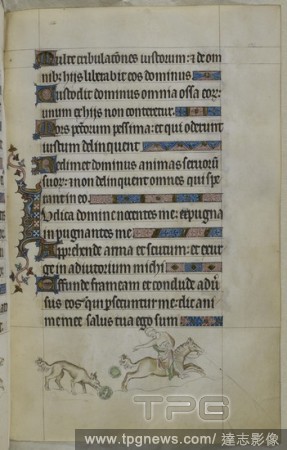 Multe tribulationes iustorum: et de om
nibus hijs liberabit eos dominus.
Custodit dominus omnia ossa eor
unum ex hijs non conteretur.
Mors peccatorum pessima: et qui oderunt
iustum delinquent
Redimet dominus animas seruorum
suorum: et non delinquent omnes qui spe
rant in eo.
Iudica domine nocentes me: expugna
inpugnantes me
Apprehende arma et scutum: et exur
ge in adiutorium michi
Effunde frameam et conclude aduer
sus eos qui persecuntur me: dic ani
me mee salus tua ego sum
TPG
www.tpgnews.com/ 達志影像